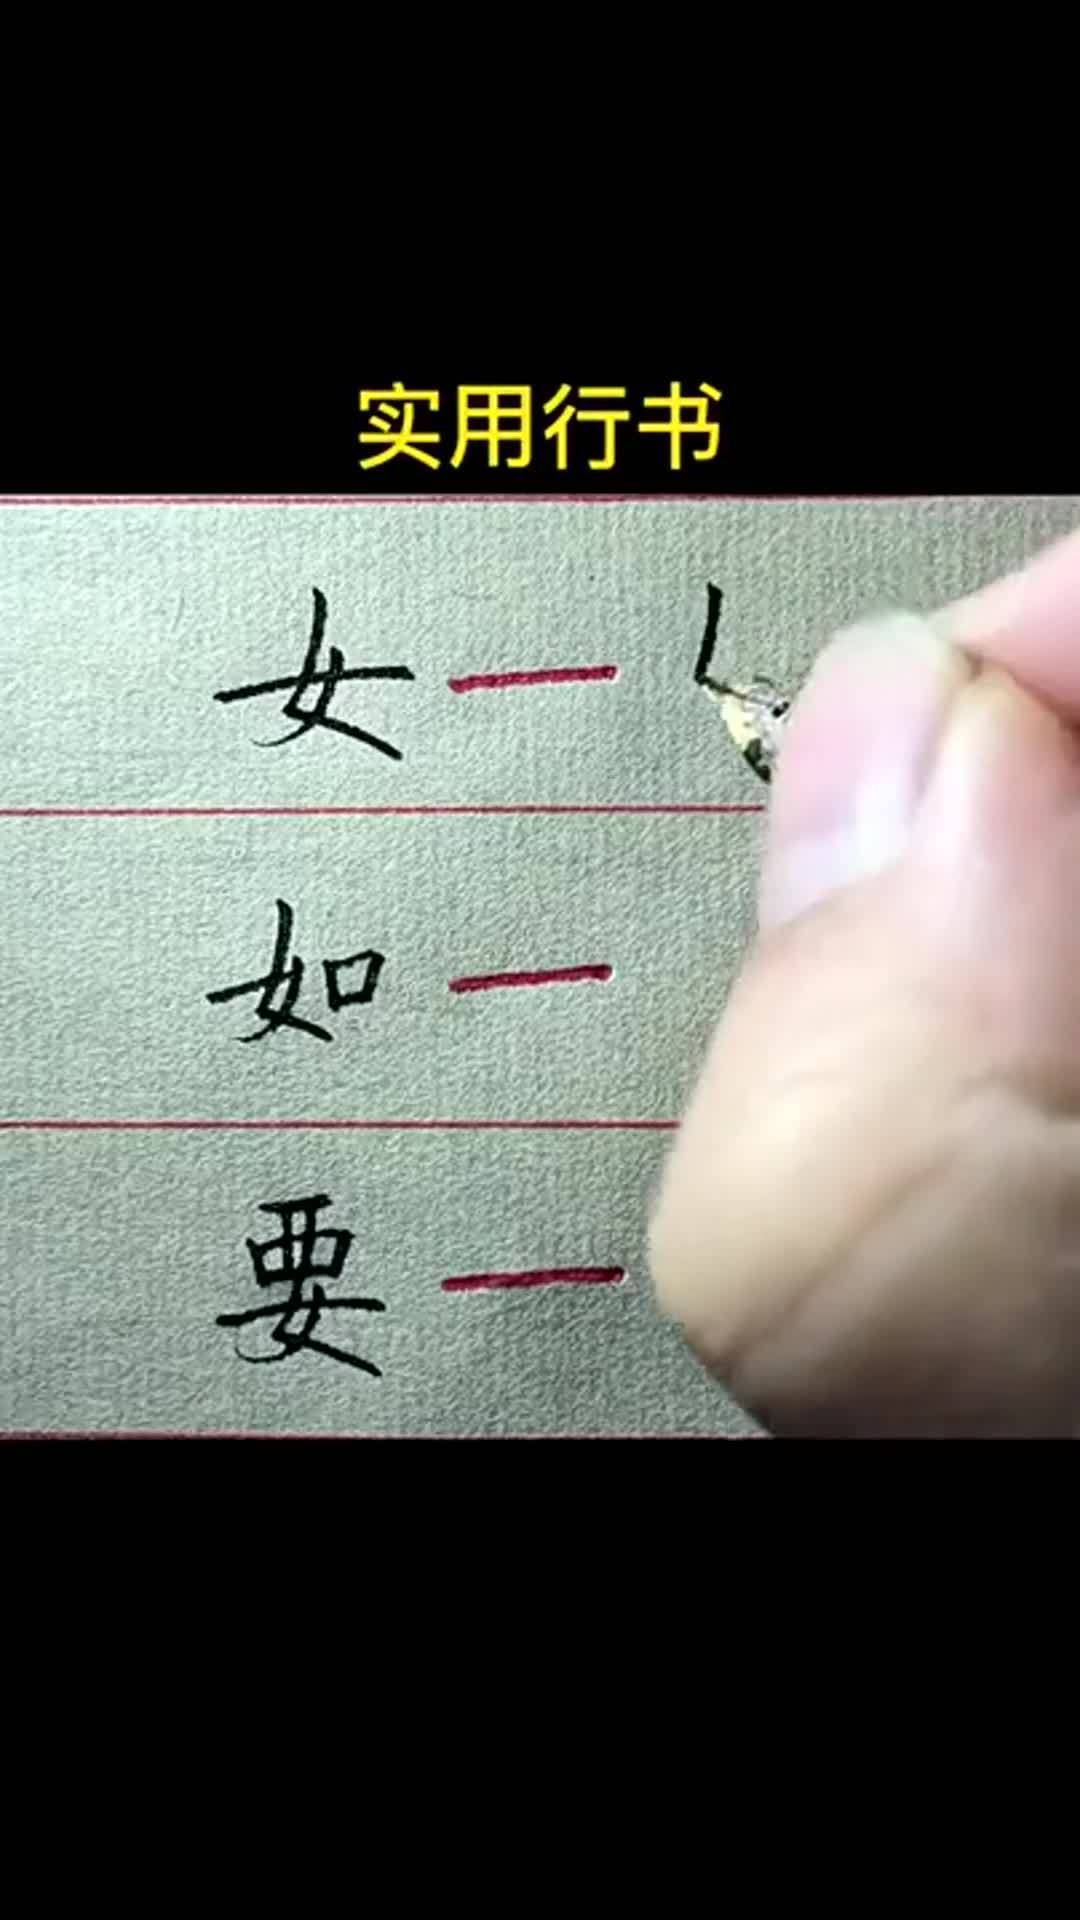 实用行书
女一
如一
要一